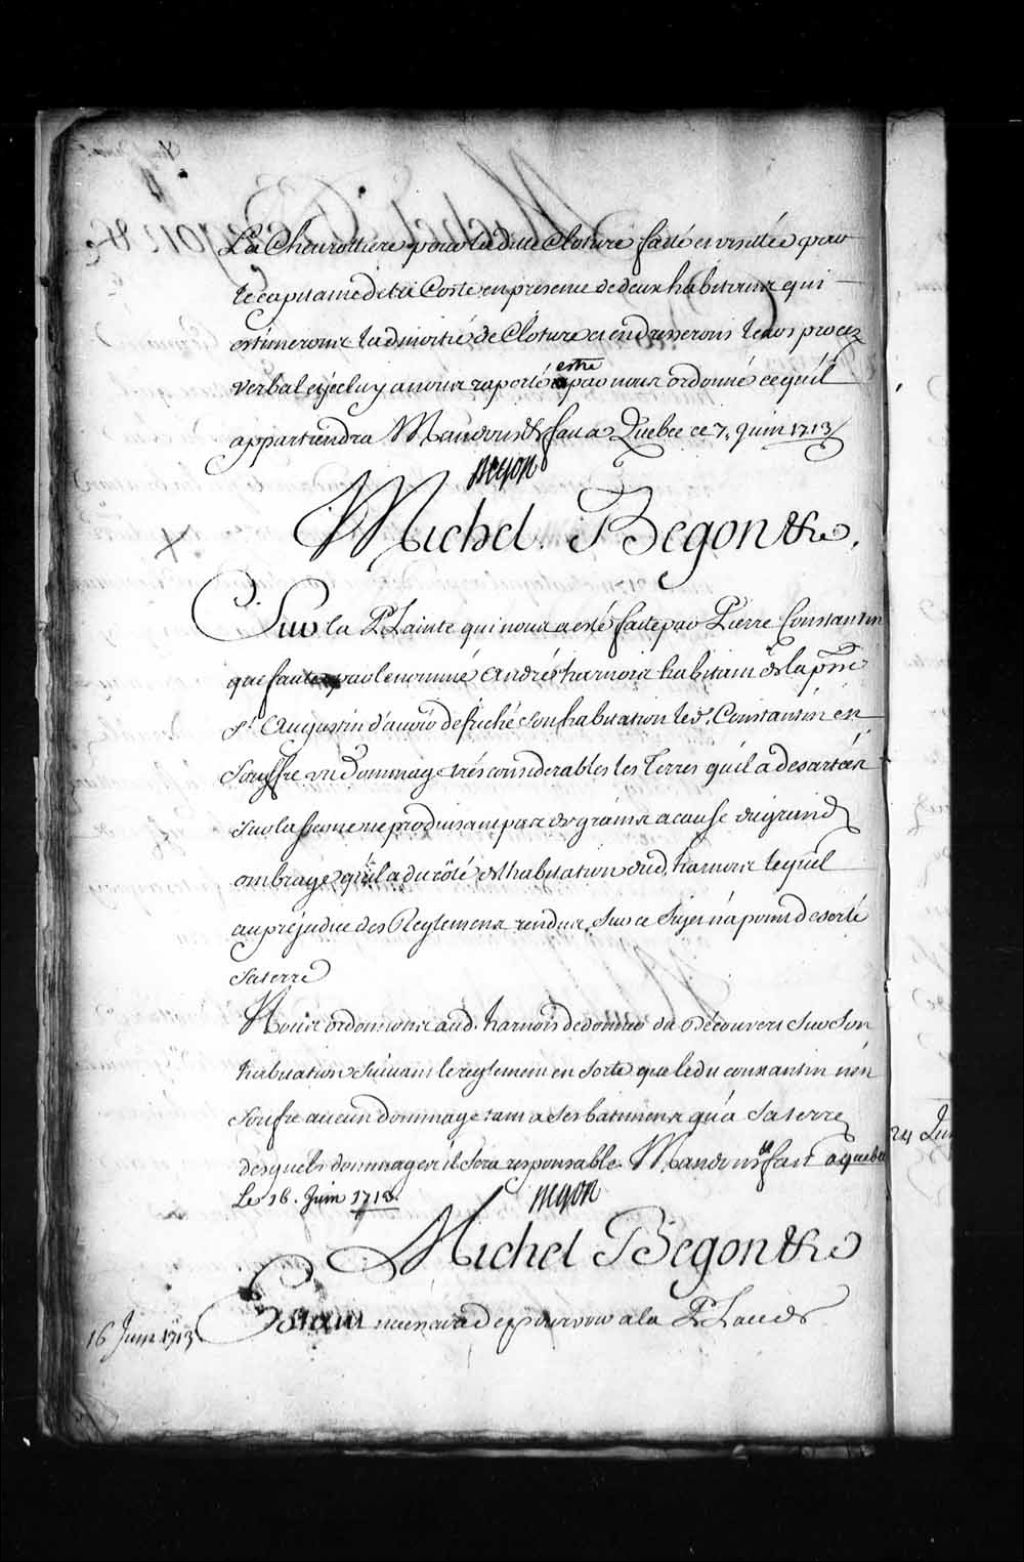 La Chevrottiere pour ladite Cloture faite et visitée par
le capitaine de la Coste en presence de deux habitans qui
estimeront la d. moitié de Cloture et en dresseront leurs procez
verbal et iceluy a nous raporté estre par nous ordonné ce qu'il
appartiendra Mandons &c fait a Quebec ce 7. Juin 1713
Begon
Michel Begon &c.
Sur la Plainte qui nous a esté faite par Pierre Constantin
que faute par le nommé André harnois habitant de la
St. Augustin d'avoir defriché son habitation led. Constantin en
souffre un Dommage trés considerables les Terres qu'il a desertées
sur la sienne ne produisant pas de grains a cause du grand
ombrage qu'il a du côté de l'habitation dud. harnois lequel
au prejudice des Reglemens rendus sur ce Sujet n'a point deserté
sa terre
Nous ordonnons aud. harnois de donner du Découvert sur son
habitation suivant le reglement en sorte que ledit constantin n'en
soufre aucun dommage tant a ses batimens qu'a sa terre
desquels dommages il sera responsable. Mandons &c fait a quebec
Le 16. Juin 1713.
Begon
Michel Begon &c
16 Juin 1713
Estant necessaire de pourvoir a la Place de
24 Jui